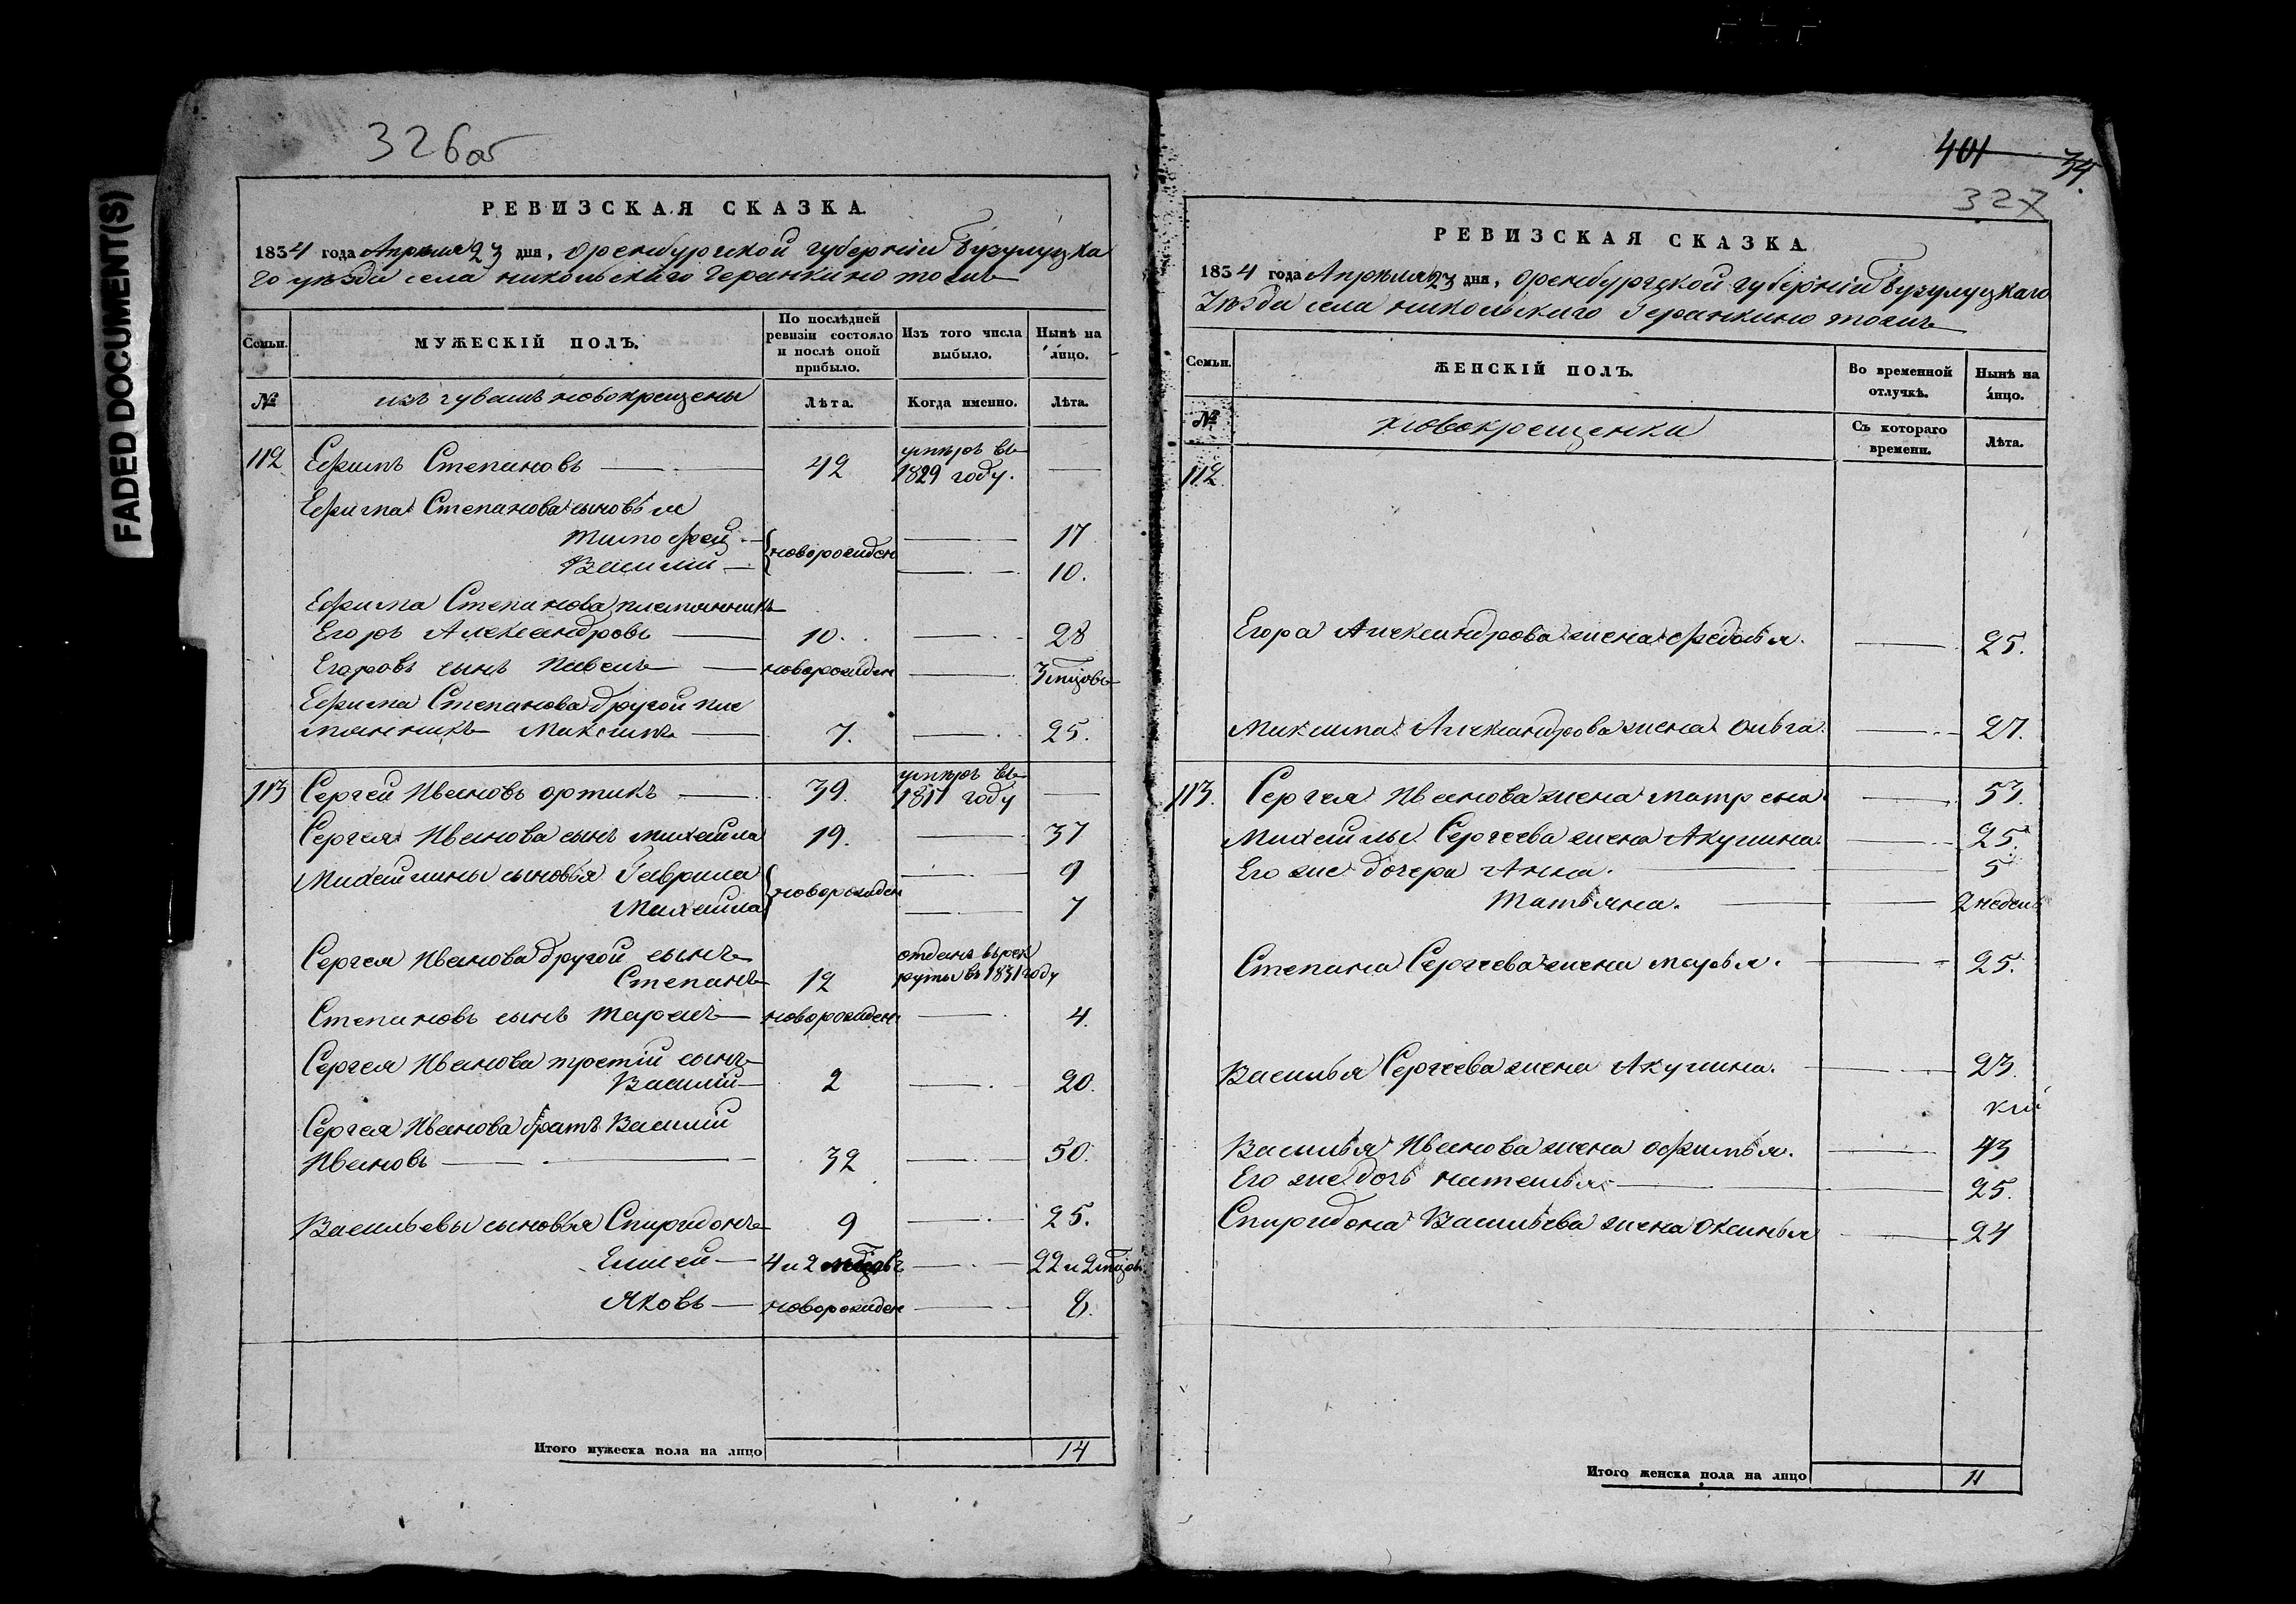 FADED DOCUMENT(S)
326об
РЕВИЗСКАЯ СКАЗКА
1834 года Апреля 23 дня, Оренбургской губернiи Бузулуцка
го уѣзда села никольскаго Геранкино тожъ
Семьи.
МУЖЕСКIЙ ПОЛЪ.
По послѣдней ревизiи состояло и послѣ оной прибыло.
Изъ того числа выбыло.
Нынѣ на лицо.
№
изъ чувашъ новокрещены
Лѣта.
Когда именно.
Лѣта.
112 Ефимъ Степановъ 42 умѣръ въ 1829 году.
Ефима Степанова сыновья
Тимофей новорожден 17
Василiй 10.
Ефима Степанова племянникъ
Егоръ Александровъ 10. 28
Егоровъ сынъ Павелъ новорожден 3 мцовъ
Ефима Степанова другой пле
мянникъ Максимъ 7. 25.
113 Сергей Ивановъ ортикъ 39. умѣръ въ 1817 году
Сергея Иванова сынъ михайла 19. 37
Михайлины сыновья Гаврила новорожден 9
Михайла 7
Сергея Иванова другой сынъ
Степанъ 12 отданъ въ рек руты въ 1831 году
Степановъ сынъ Тарасъ новорожден 4.
Сергея Иванова третiй сынъ
Василiй 2 20.
Сергея Иванова братъ Василiй
Ивановъ 32 50.
Васильевы сыновья Спиридонъ 9 25.
Елисей 4 и 2 мцовъ 22 и 2 мцов.
Яковъ новорожден 8.
Итого мужеска пола на лицо 14
401 34.
327
РЕВИЗСКАЯ СКАЗКА
1834 года Апреля 23 дня, Оренбургской губернiи Бузулуцкаго
Уѣзда села никольскаго Геранкино тожъ
Семьи.
ЖЕНСКIЙ ПОЛЪ.
Во временной отлучкѣ.
Нынѣ на лицо.
№
новокрещенки
Съ котораго времени.
Лѣта.
112
Егора Александрова жена Федосья. 25.
Максима Александрова жена Ольга. 27.
113. Сергея Иванова жена матрена. 53.
Михайлы Сергеева жена Акулина. 25.
Его же дочери Анна. 5
Татьяна. 2 недель
Степана Сергеева жена марья. 25.
Василья Сергеева жена Акулина. 23.
Василья Иванова жена офимья. 43
Его же дочь наталья 25.
Спиридона Васильева жена Оксинья 24
Итого женска пола на лицо 11